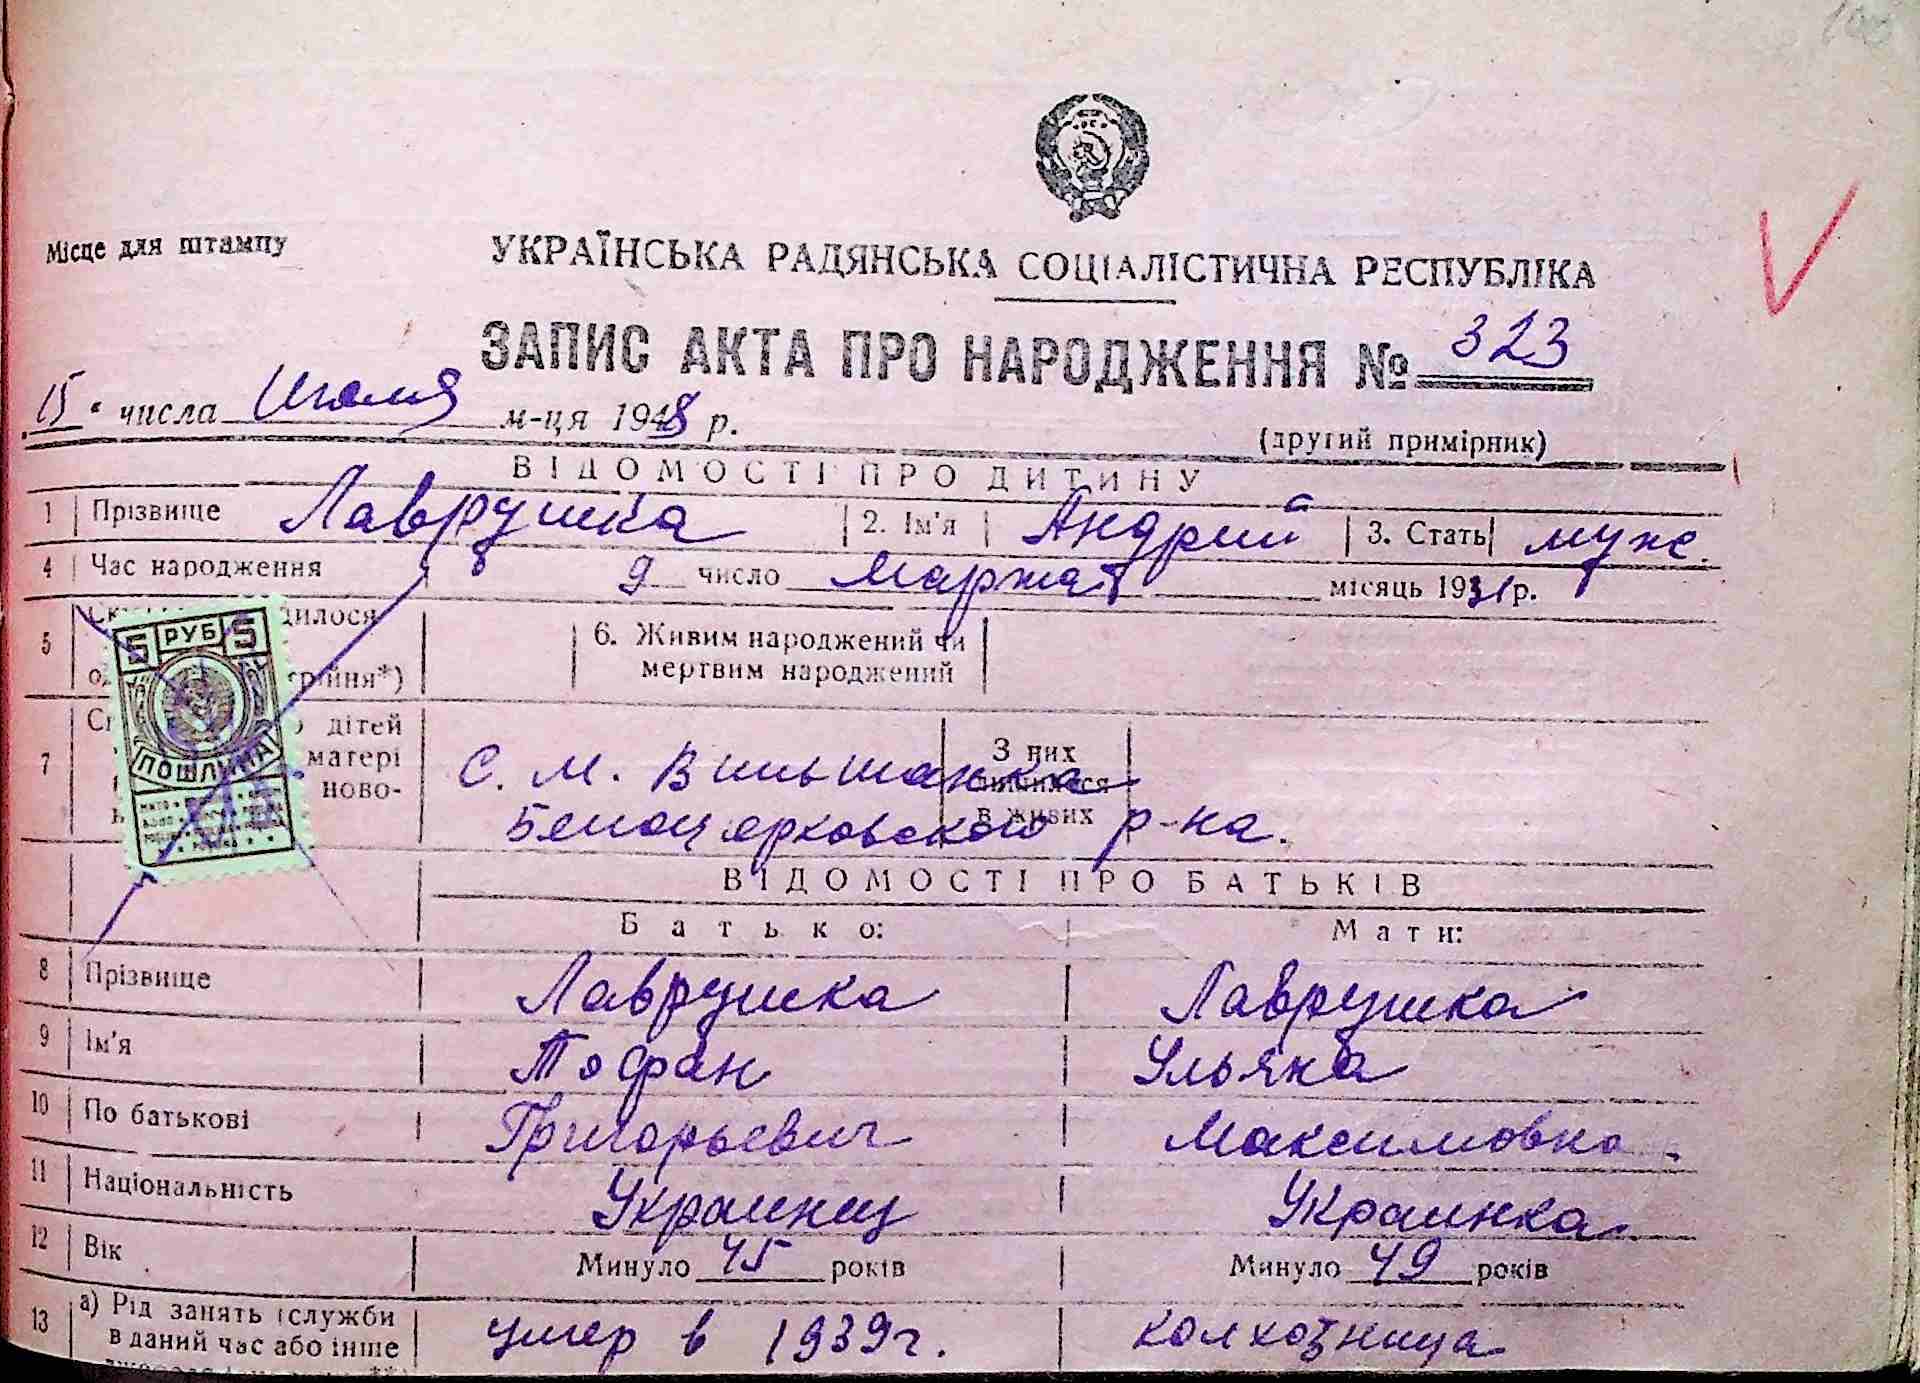 Місце для штампу
УКРАЇНСЬКА РАДЯНСЬКА СОЦІАЛІСТИЧНА РЕСПУБЛІКА
ЗАПИС АКТА ПРО НАРОДЖЕННЯ № 323
15 числа Июля м-ця 1948 р.
(другий примірник)
ВІДОМОСТІ ПРО ДИТИНУ
1 Прізвище Лаврушка 2. Ім'я Андрий 3. Стать муж.
4 Час народження 9 число Марта місяць 1931 р.
5 РУБ 5
ПОШЛИНА
5 дилося
6. Живим народжений чи
мертвим народжений
7 дітей
матері
ново-
З них
в живих
С. М. Вильшанка
Белоцерковского р-на.
ВІДОМОСТІ ПРО БАТЬКІВ
Батько: Мати:
8 Прізвище Лаврушка Лаврушка
9 Ім'я Тофан Ульяна
10 По батькові Григорьевич Максимовна
11 Національність Украинец Украинка
12 Вік Минуло 45 років Минуло 49 років
13 а) Рід занять (служби умер в 1939 г. колхозница
в даний час або інше